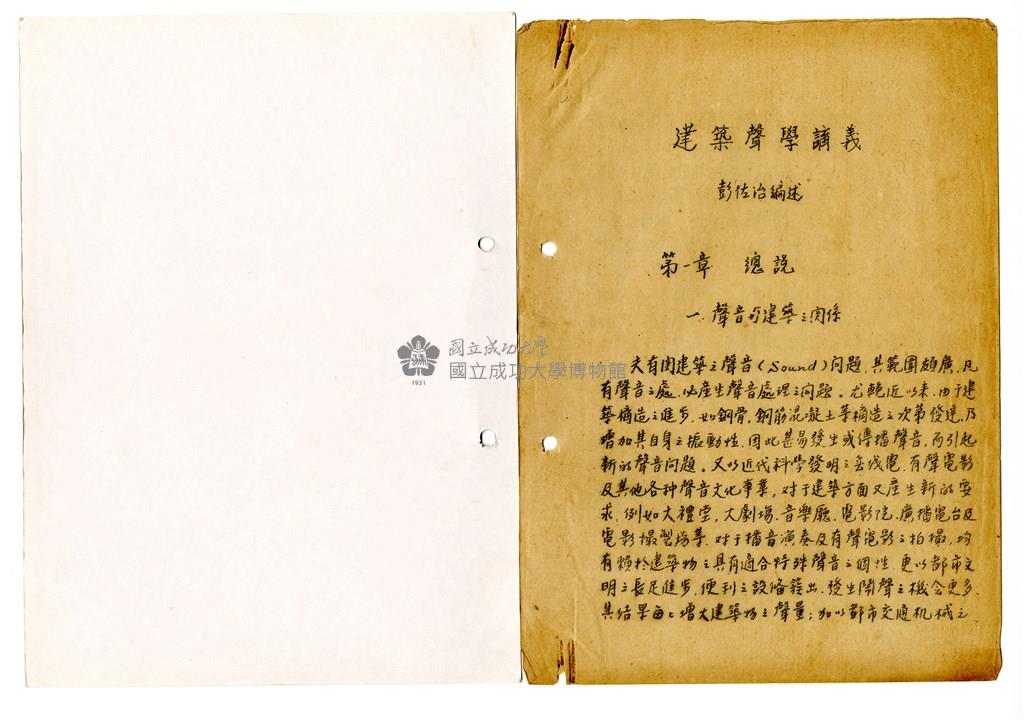 國立成功大學
國立成功大學博物館
1931
建築聲學講義
彭佐治編述
第一章 總說
一. 聲音与建築之関係
夫有関建築之聲音(Sound)问題,其範圍頗廣,凡
有聲音之處,必產生聲音處理之问題。尤輓近以来,由于建
築構造之進步,如鋼骨,鋼筋混凝土等構造之次第發達,乃
增加其自身之振動性,因此甚易發生或傳播聲音,而引起
新的聲音问題。又以近代科學發明之無线電,有聲電影
及其他各种聲音文化事業,对于建築方面又產生新的要
求,例如大禮堂,大劇場,音樂廳,電影院,廣播電台及
電影撮製場等,对于播音演奏及有聲電影之拍撮,均
有賴於建築物之具有適合特殊聲音之個性,更以都市文
明之長足進步,便利之設備簇出,發生鬧聲之機会更多,
其结果每々增大建築物之聲量;加以都市交通机械之